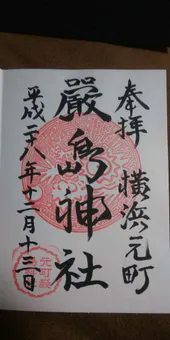 奉拝　横浜元町
嚴島神社
平成二八年十二月十三日